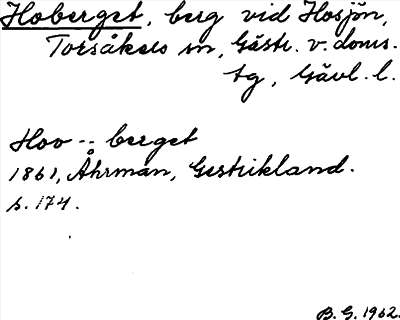 Hoberget, berg vid Hosjön,
Torsåkers sn, Gästr. v. doms.
tg, Gävl. l.
Hov -:- berget
1861, Åhrman, Gestrikland.
s. 174.
B. G. 1962.